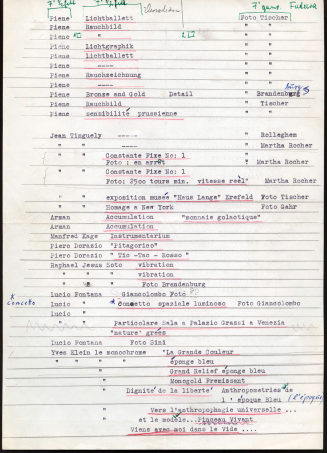 Piene Lichtballett Foto Tischer
Piene Rauchbild " "
Piene " " "
Piene Lichtgraphik " "
Piene Lichtballett " "
Piene ---- " "
Piene Rauchzeichnung " "
Piene ---- " "
Piene Bronze and Gold Detail " Brandenburg
Piene Rauchbild " Tischer
Piene sensibilité prussienne " "
Jean Tinguely ----- " Rolleghem
" " ---- " Martha Rocher
" " Constante Fixe No: 1
Foto : en arrêt " Martha Rocher
" " Constante Fixe No: 1
Foto: 2500 tours min. vitesse reèl" Martha Rocher
" " exposition musée "Haus Lange" Krefeld Foto Tischer
" " Homage a New York Foto Gahr
Arman Accumulation "monnaie golactique"
Arman Accumulation
Manfred Kage Instrumentarium
Piero Dorazio "Pitagorico"
Piero Dorazio " Tic -Tac - Rosso "
Raphael Jesus Soto vibration
" " " vibration
" " " Foto Brandenburg
Lucio Fontana Giancolombo Foto
concetto * Concetto spaziale luminoso Foto Giancolombo
Lucio "
" Particolare Sala a Palazio Grassi a Venezia
"nature" grées
Lucio Fontana Foto Sini
Yves Klein le monochrome "La Grande Couleur
" " " " éponge bleu
" Grand Relief éponge bleu
" Monogold Fremissant
" Dignité de la liberté Anthropometries de
l ' époque Bleu (l'époque
" Vers l'anthropophagie universelle ...
" et le modèle...Pinceau Vivant
Viens avec moi dans le Vide ....